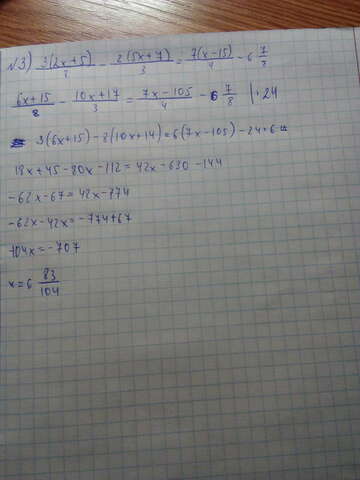 №3) 3(2x+5)/8 - 2(5x+7)/3 = 7(x-15)/4 - 6 7/8
6x+15/8 - 10x+17/3 = 7x-105/4 - 6 7/8 |·24
3(6x+15)-8(10x+14)=6(7x-105)-24·6
18x+45-80x-112=42x-630-144
-62x-67=42x-774
-62x-42x=-774+67
104x=-707
x=6 83/104